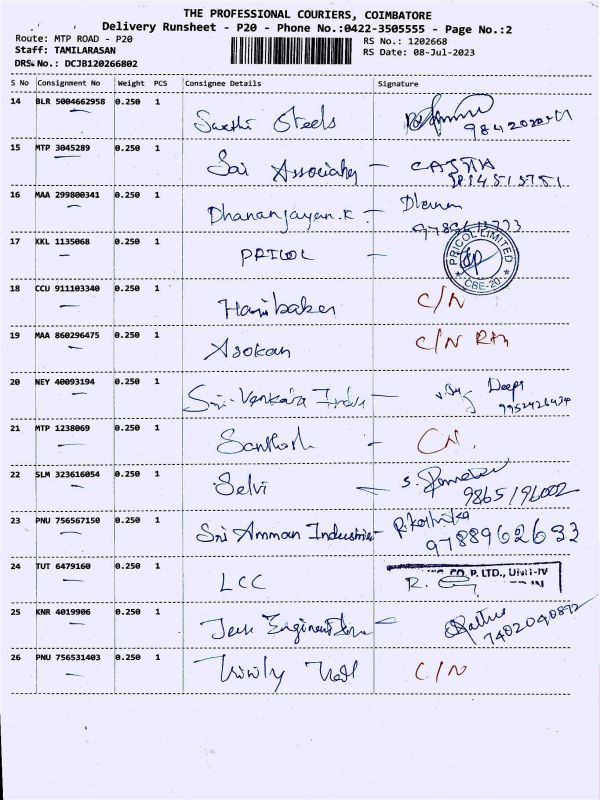 THE PROFESSIONAL COURIERS, COIMBATORE
Delivery Runsheet - P20 - Phone No.:0422-3505555 - Page No.:2
Route: MTP ROAD - P20
RS No.: 1202668
Staff: TAMILARASAN
RS Date: 08-Jul-2023
DRS No.: DCJB120266802
S No Consignment No Weight PCS Consignee Details Signature
14 BLR 5004662958 0.250 1 Sakthi Steels
15 MTP 3045289 0.250 1 Sai
16 MAA 299800341 0.250 1 Dhananjayan.K
17 KKL 1135068 0.250 1 PRICOL PRICOL LIMITED CBE-20
18 CCU 911103340 0.250 1 C/N
19 MAA 860296475 0.250 1 Asokan C/N
20 NEY 40093194 0.250 1 Sri Deepa
21 MTP 1238069 0.250 1 Santhosh CN.
22 SLM 323616054 0.250 1 Selvi S. 9865196002
23 PNU 756567150 0.250 1 Sri Amman Industries 9788962633
24 TUT 6479160 0.250 1 LCC CO. P. LTD., UNIT-IV
25 KNR 4019906 0.250 1 7402040892
26 PNU 756531403 0.250 1 C/N